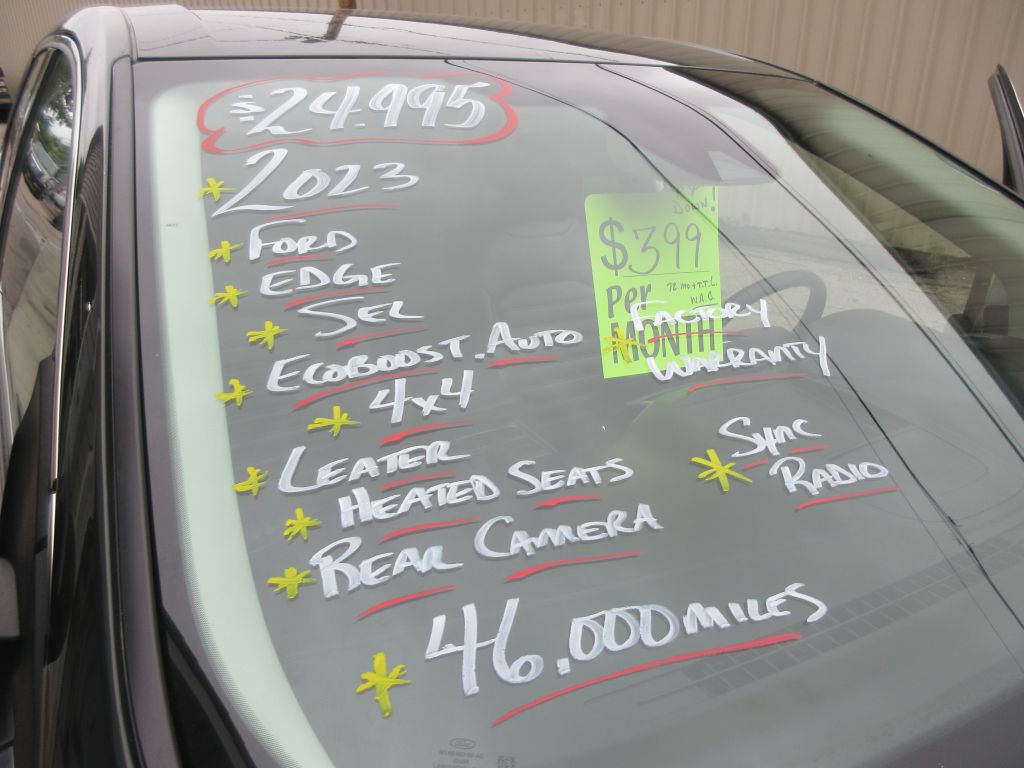 $24.995
2023
FORD
EDGE
SEL
ECOBOOST. AUTO
4x4
LEATER
HEATED SEATS
REAR CAMERA
46.000 MILES
DOWN!
$399
per 
MONTH
FACTORY
WARRANTY
SYNC
RADIO
Ford